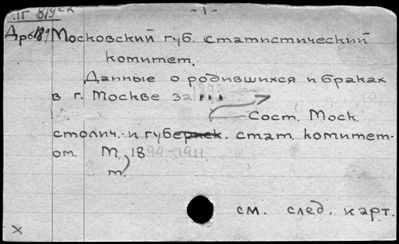 - 1 -
Московский губ. статистический
комитет.
Данные о родившихся и браках
в г. Москве за ...
Сост. Моск.
столич. и губе стат. комитет-
ом. М. 1894-1911.
т.
см. след. карт.